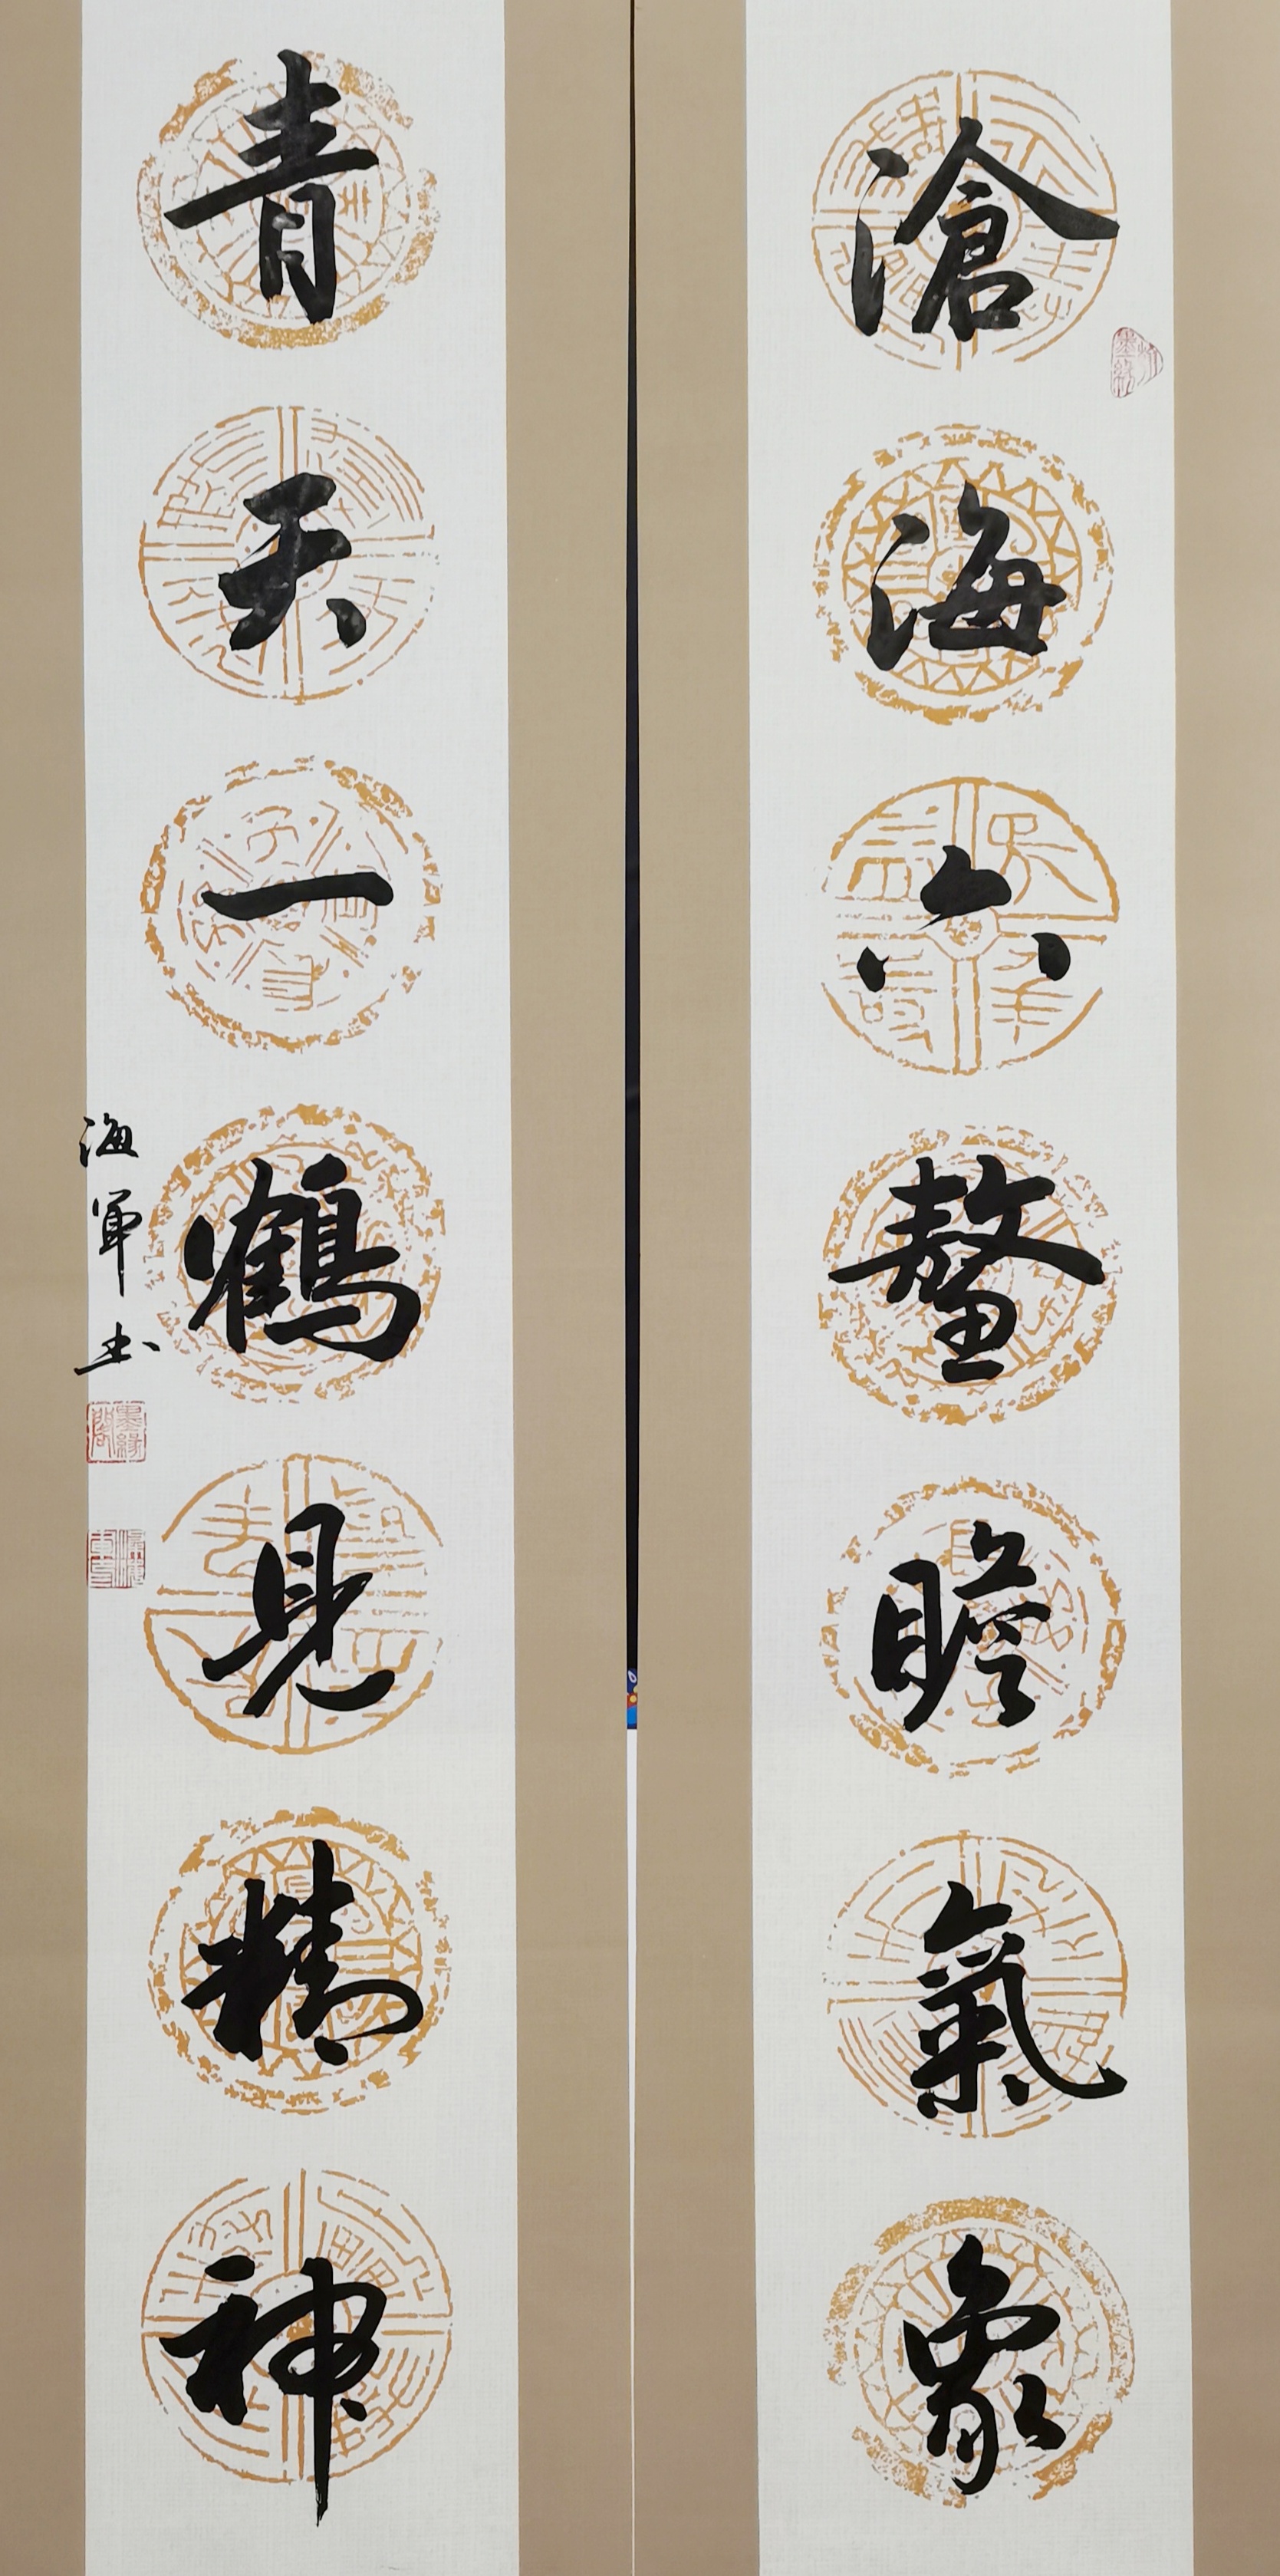 滄海六鰲瞻氣象
青天一鶴見精神
海軍书
墨緣閣